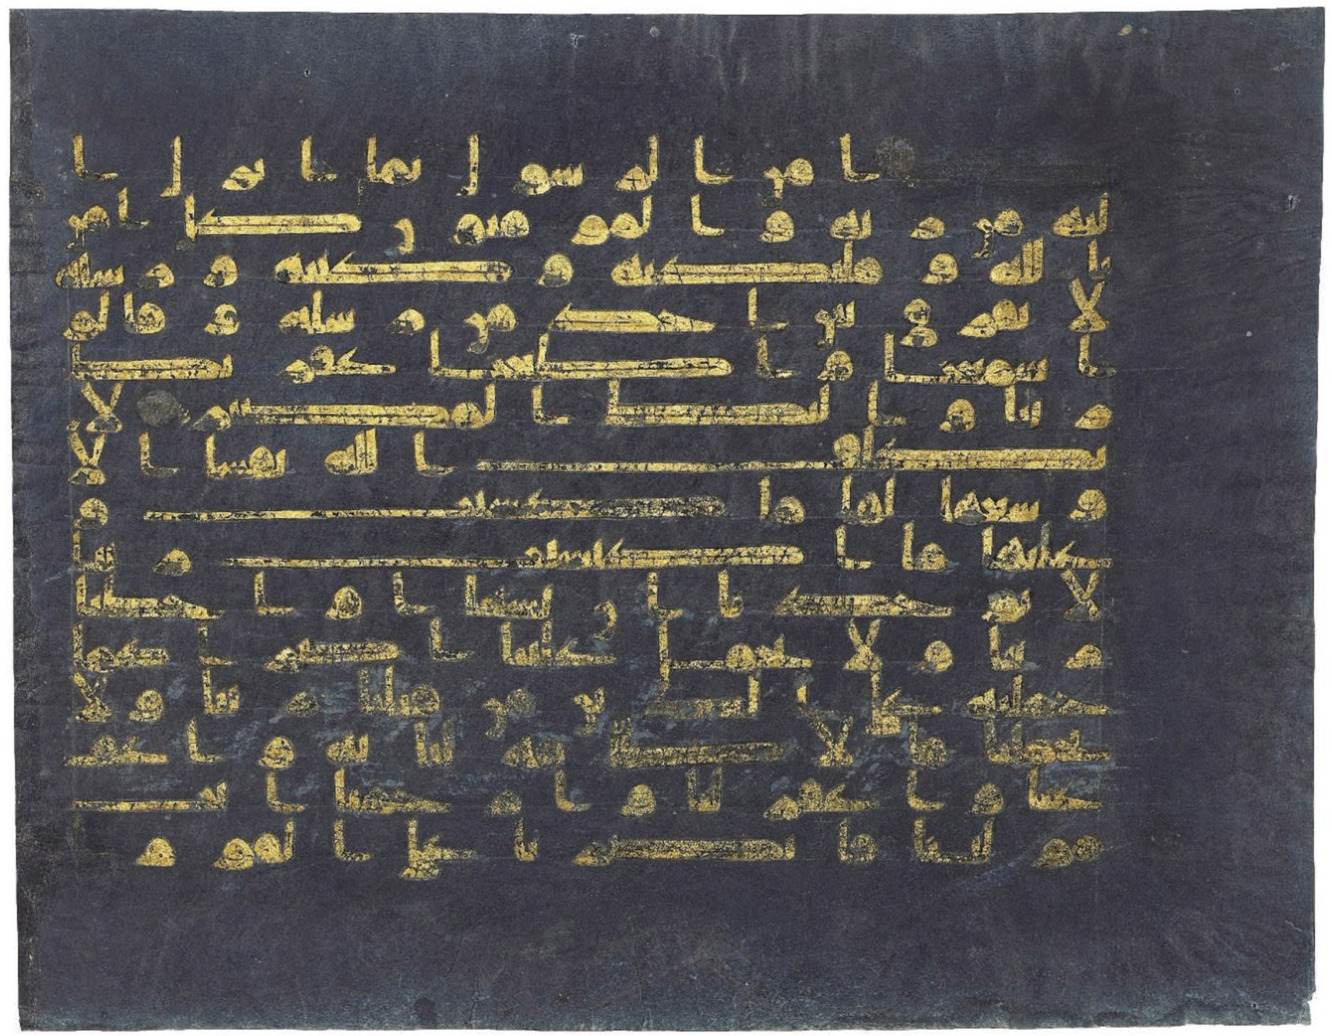 امن الرسول بما انزل ا
ليه من ربه والمومنون كل امن
بالله ومليكته وكتبه ورسله
لا نفرق بين احد من رسله وقالو
ا سمعنا واطعنا غفرنك
ربنا واليك المصير لا
يكلف الله نفسا الا
وسعها لها ما كسبت و
عليها ما اكتسبت ربنا
لا تواخذنا ان نسينا او اخطانا
ربنا ولا تحمل علينا اصرا كما
حملته على الذين من قبلنا ربنا ولا
تحملنا ما لا طاقة لنا به واعف
عنا واغفر لنا وارحمنا انت
مولينا فانصرنا على القوم